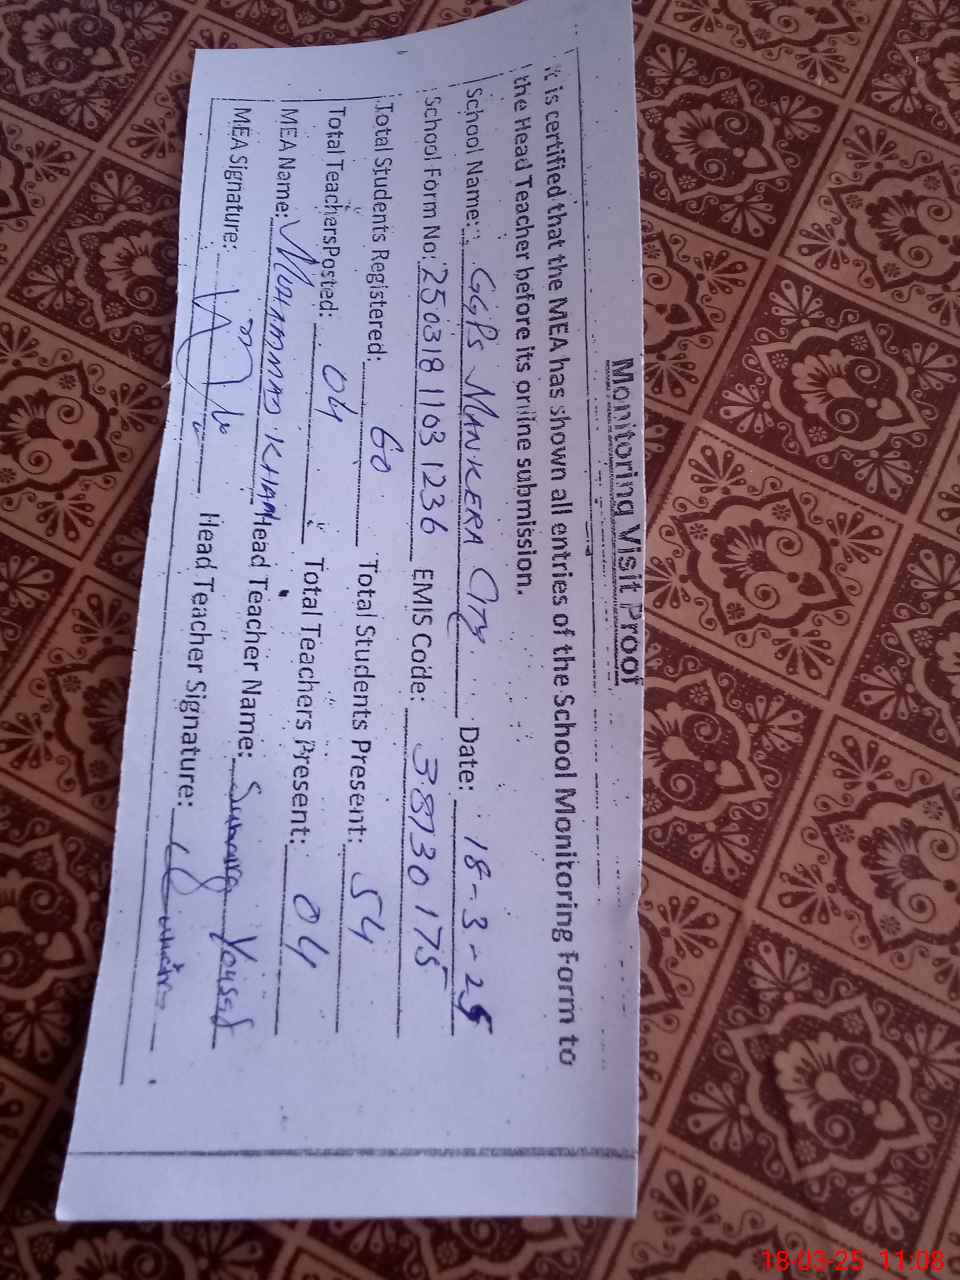 Monitoring Visit Proof
It is certified that the MEA has shown all entries of the School Monitoring Form to
the Head Teacher before its online submission.
School Name: GGPS MANKERA CITY Date: 18-3-25
School Form No: 250318 1103 1236 EMIS Code: 38730175
Total Students Registered: 60 Total Students Present: 54
Total TeachersPosted: 04 Total Teachers Present: 04
MEA Name: MUHAMMAD KHAN Head Teacher Name: Sumaira Yousaf
MEA Signature: Head Teacher Signature:
18-03-25 11:08